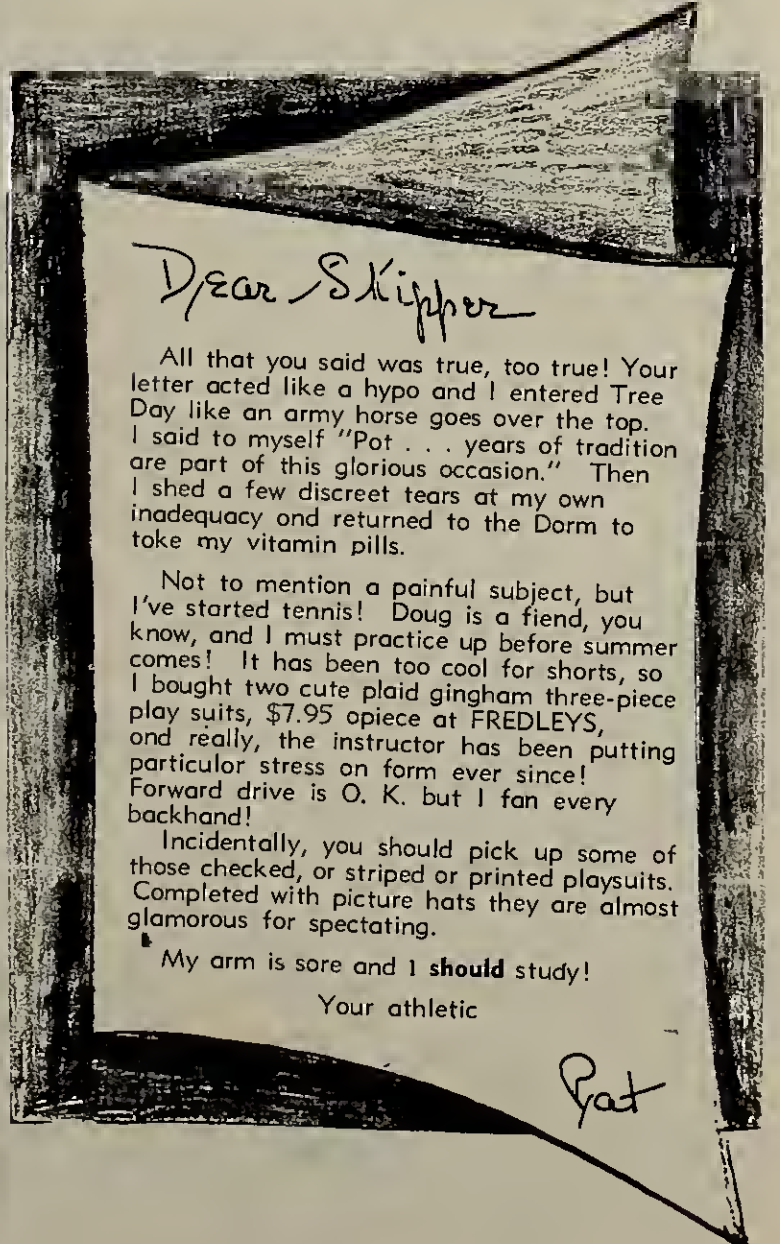 Dear Skipper
All that you said was true, too true! Your
letter acted like a hypo and I entered Tree
Day like an army horse goes over the top.
I said to myself "Pot . . . years of tradition
are part of this glorious occasion." Then
I shed a few discreet tears at my own
inadequacy ond returned to the Dorm to
toke my vitamin pills.
Not to mention a painful subject, but
I've started tennis! Doug is a fiend, you
know, and I must practice up before summer
comes! It has been too cool for shorts, so
I bought two cute plaid gingham three-piece
play suits, $7.95 opiece at FREDLEYS,
ond really, the instructor has been putting
particulor stress on form ever since!
Forward drive is O. K. but I fan every
backhand!
Incidentally, you should pick up some of
those checked, or striped or printed playsuits.
Completed with picture hats they are almost
glamorous for spectating.
My arm is sore and I should study!
Your athletic
Pat